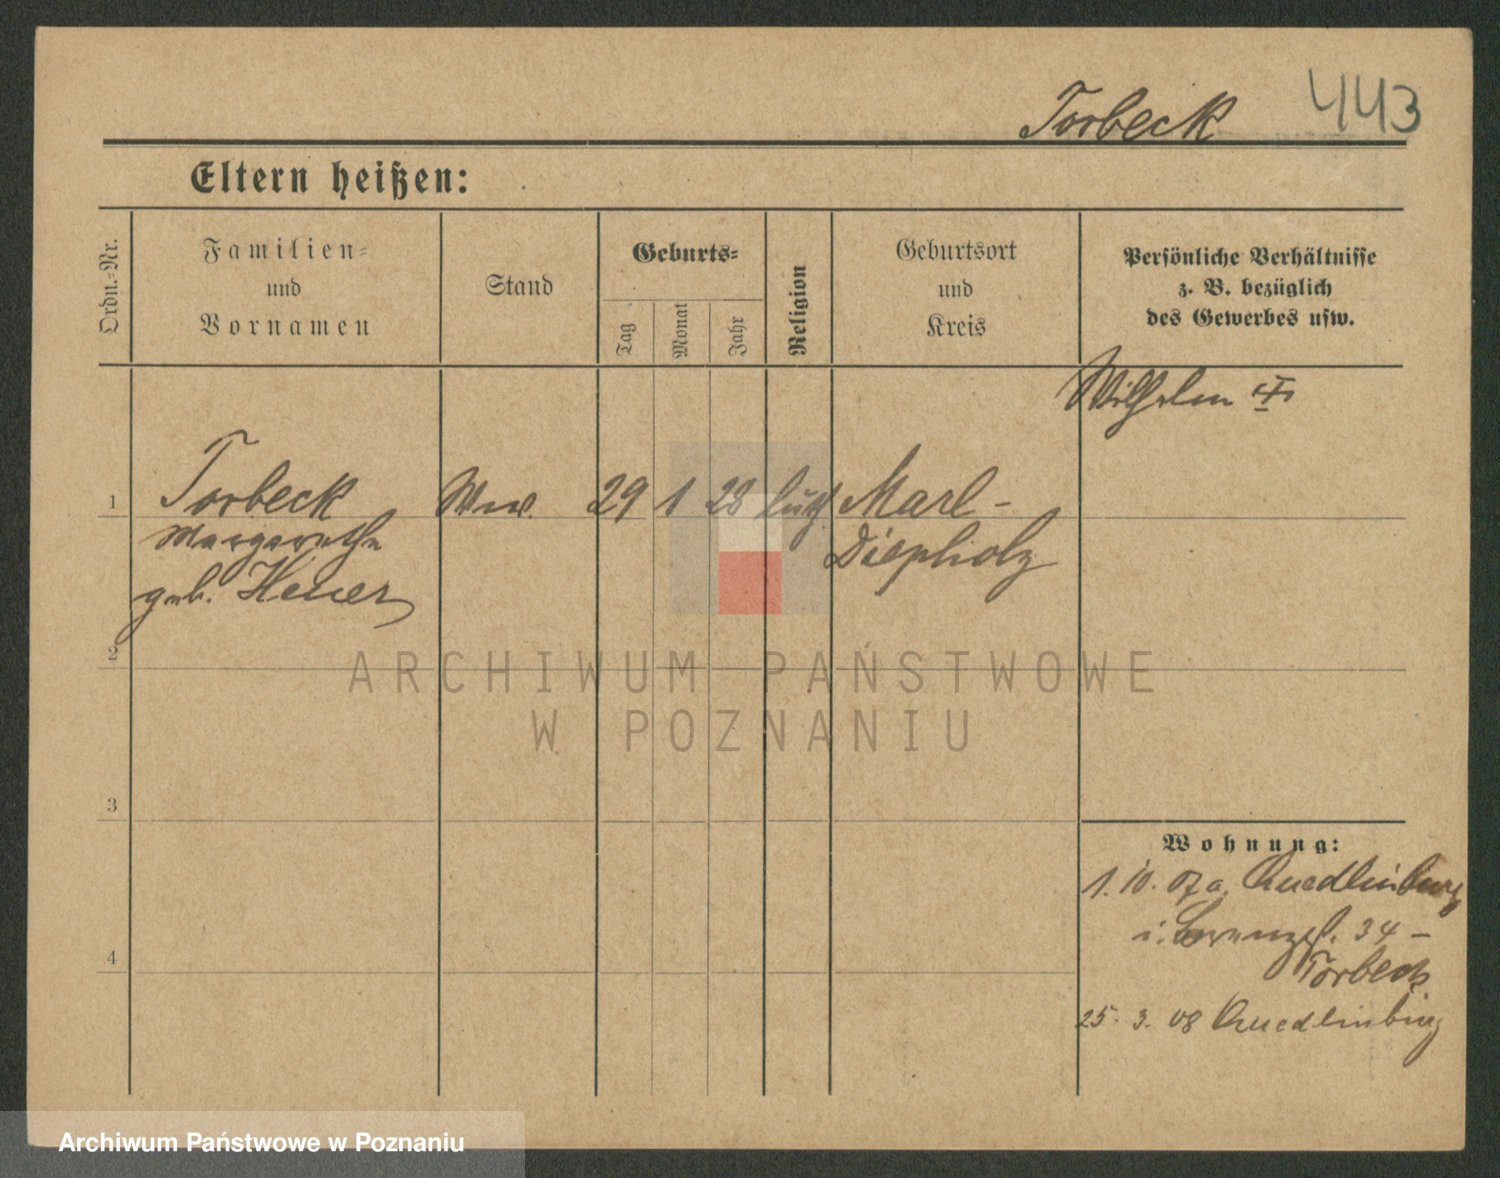 Torbeck 443
Eltern heißen:
Ordn.-Nr.
Familien-
und
Vornamen
Stand
Geburts-
Tag
Monat
Jahr
Religion
Geburtsort
und
Kreis
Persönliche Verhältnisse
z. B. bezüglich
des Gewerbes usw.
Wilhelm
1 Torbeck Ww. 29 1 28 luth. Marl-
Margarethe Diepholz
geb. Heuer
2
ARCHIWUM PAŃSTWOWE
W POZNANIU
3
Wohnung:
1. 10. 07 a. Quedlinburg
i. 34 –
Torbeck
4
25. 3. 08 Quedlinburg
Archiwum Państwowe w Poznaniu